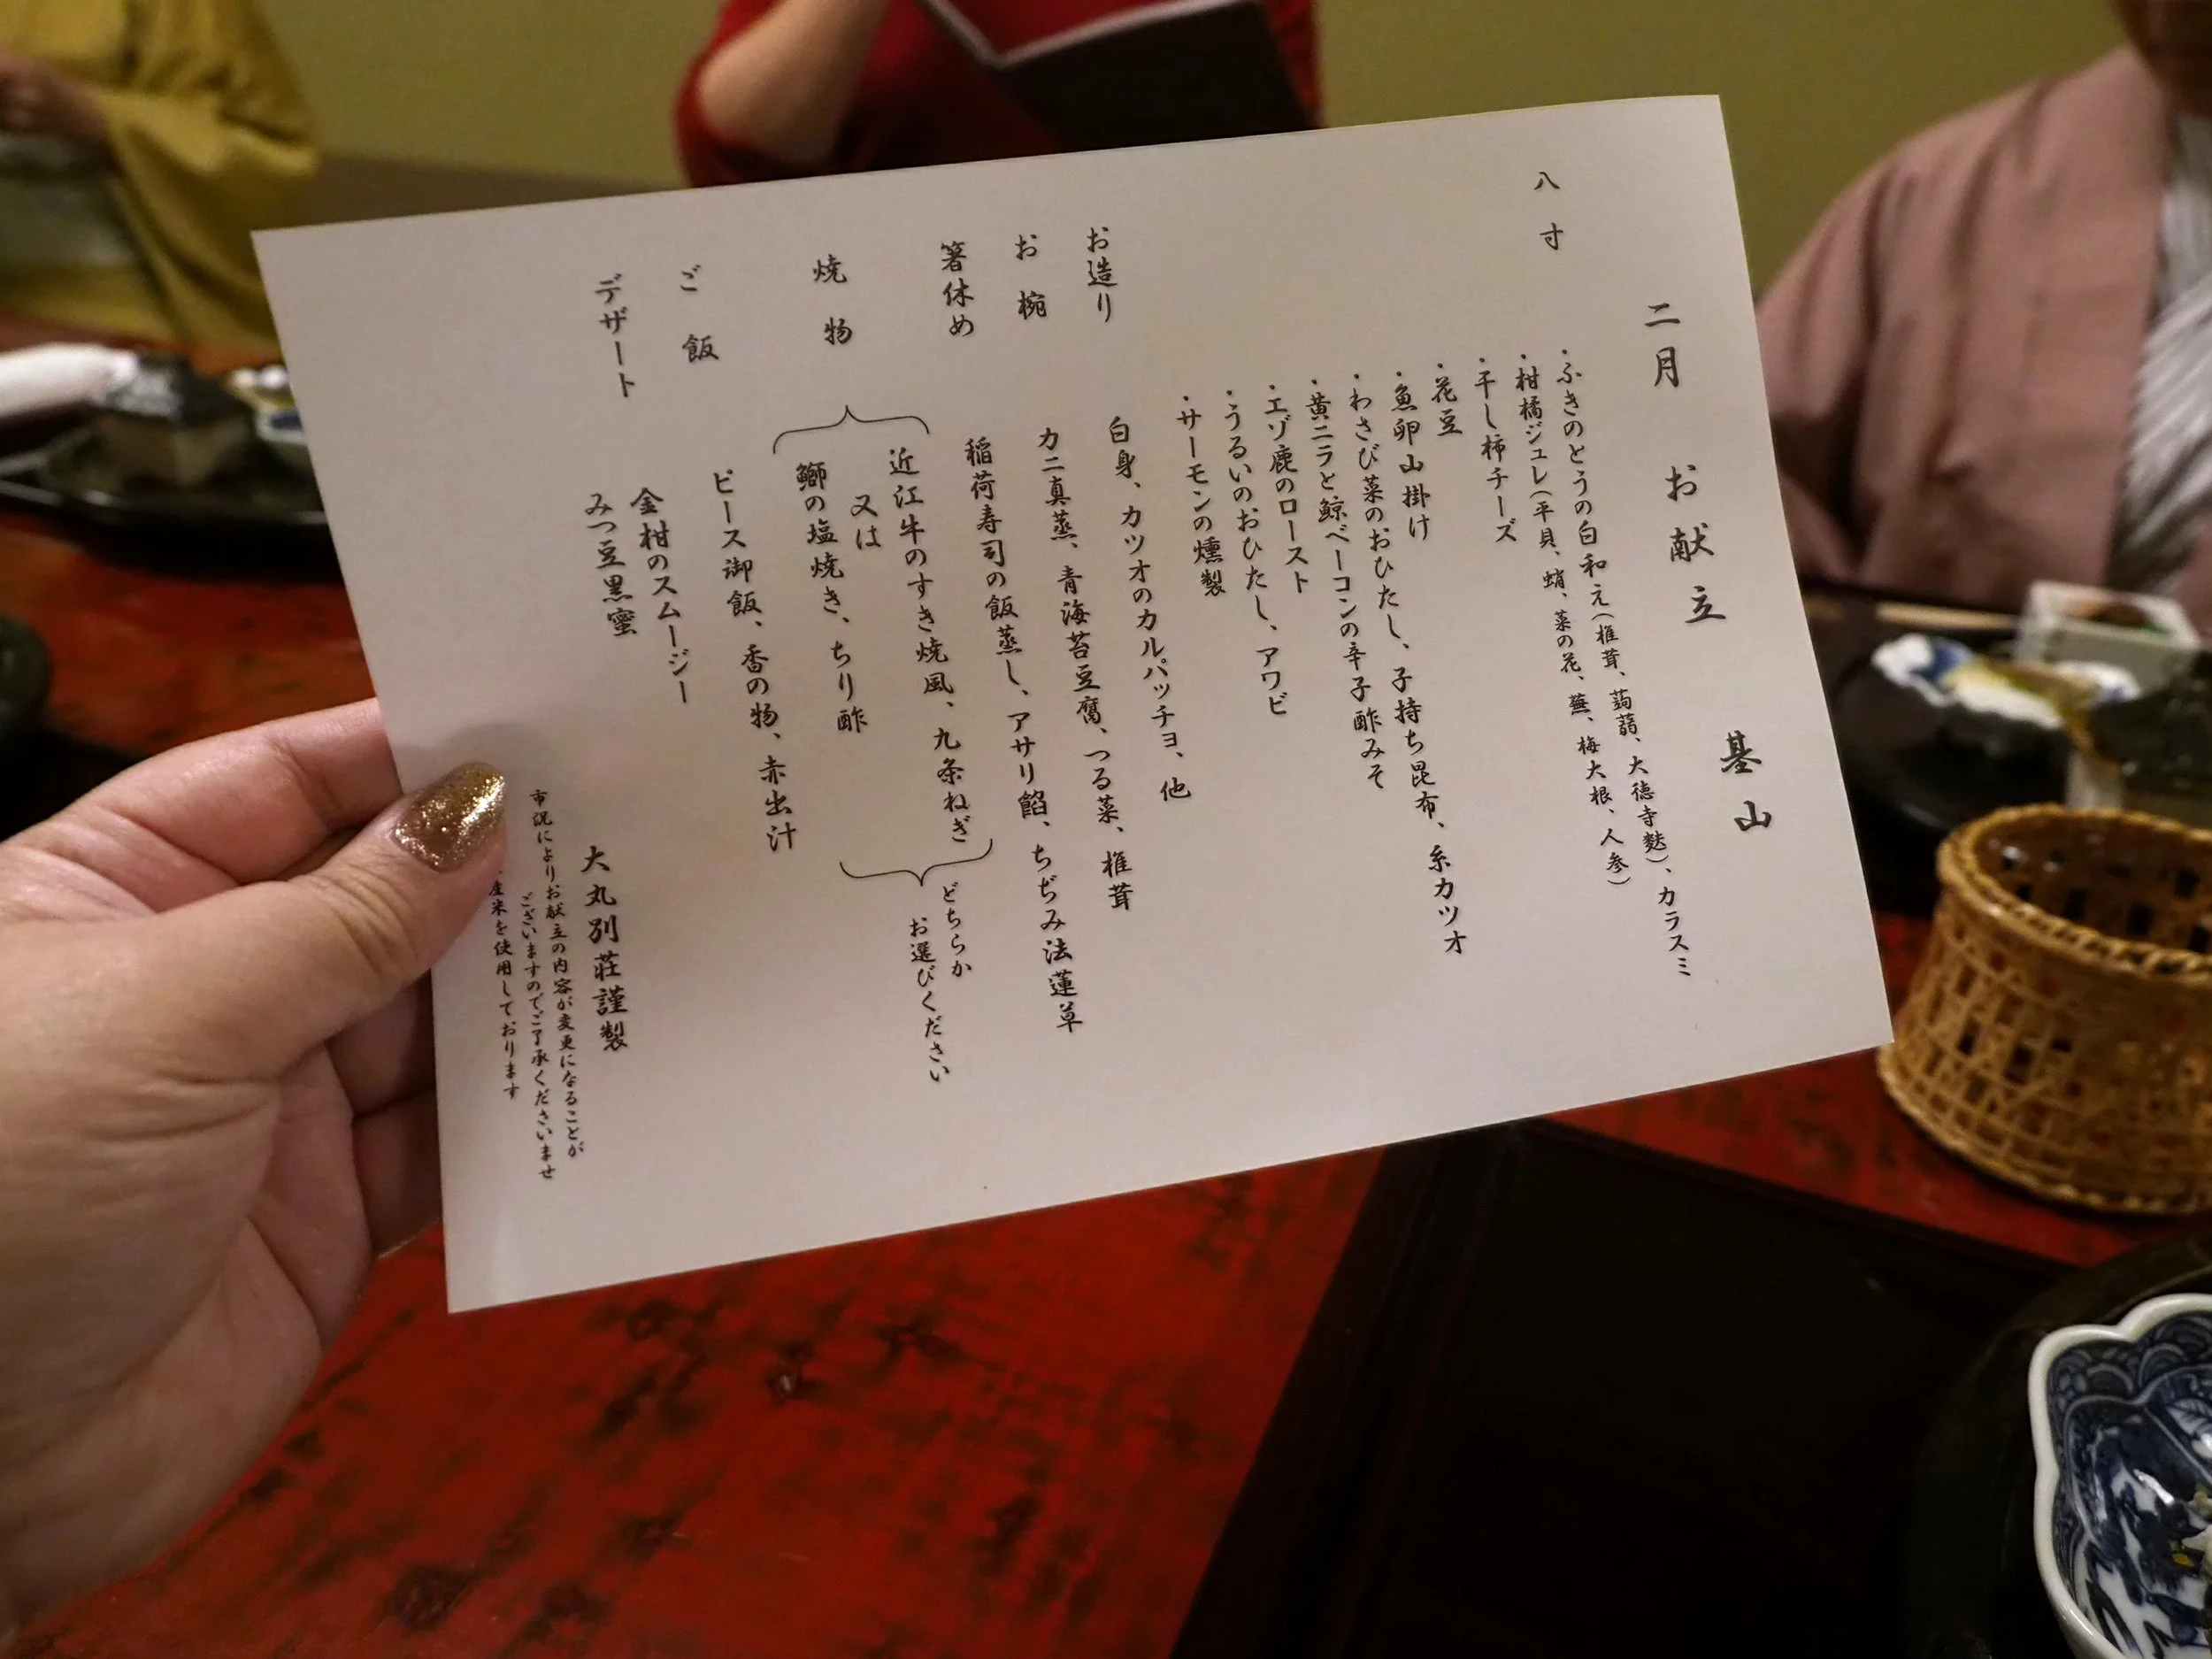 二月 お献立 基山
八寸
・ふきのとうの白和え（椎茸、蒟蒻、大徳寺麩）、カラスミ
・柑橘ジュレ（平貝、蛸、菜の花、蕪、梅大根、人参）
・干し柿チーズ
・花豆
・魚卵山掛け
・わさび菜のおひたし、子持ち昆布、糸カツオ
・黄ニラと鯨ベーコンの辛子酢みそ
・エゾ鹿のロースト
・うるいのおひたし、アワビ
・サーモンの燻製
お造り 白身、カツオのカルパッチョ、他
お椀 カニ真蒸、青海苔豆腐、つる菜、椎茸
箸休め 稲荷寿司の飯蒸し、アサリ餡、ちぢみ法蓮草
焼物 近江牛のすき焼風、九条ねぎ
又は
鰤の塩焼き、ちり酢
どちらか
お選びください
ご飯 ピース御飯、香の物、赤出汁
デザート 金柑のスムージー
みつ豆黒蜜
大丸別荘謹製
市況によりお献立の内容が変更になることが
ございますのでご了承くださいませ
産米を使用しております